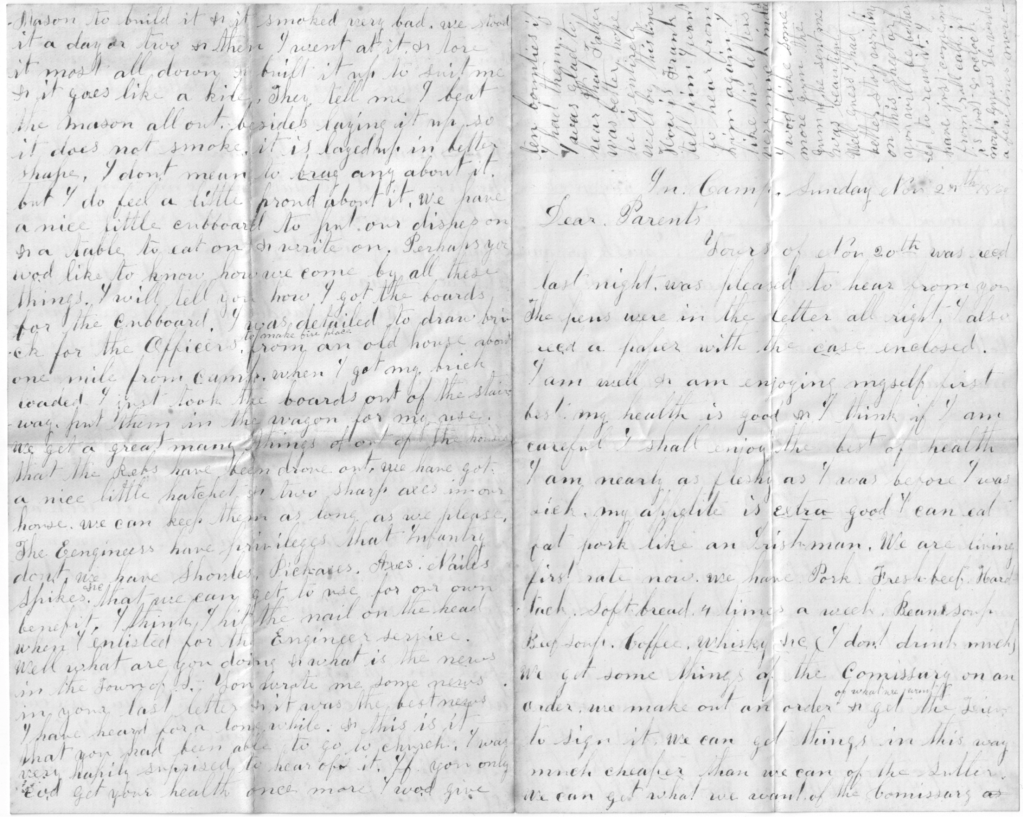 In Camp. Sunday Nov 27th
Dear Parents
Yours of Nov 20th was recd
last night. was pleased to hear from you
The pens were in the letter all right. I also
recd a paper with the case enclosed.
I am well & am enjoying myself first
best. my health is good & I think if I am
careful I shall enjoy the best of health
I am nearly as fleshy as I was before I was
sick. my appetite is extra good I can eat
fat pork like an Irishman. We are living
first rate now. we have Pork. Fresh beef. Hard
Tack. Soft bread 4 times a week. Beansoup
soup. Coffee. Whisky &c (I dont drink much)
We get some things of the Comissary on an
order. we make out an order of what we want & get the
to sign it. We can get things in this way
much cheaper than we can of the Sutler.
We can get what we want of the Comissary as
mason to build it & it smoked very bad. we
it a day or two & then I went at it & tore
it most all down & built it up to suit me
& it goes like a kite. They tell me I beat
the mason all out. besides laying it up so
it does not smoke, it is layed up in better
shape, I dont mean to brag any about it.
but I do feel a little proud about it. We have
a nice little cubboard to put our dishes on
& a table to eat on & write on. Perhaps you
wod like to know how we come by all these
things. I will tell you how I got the boards
for the cubboard. I was detailed to draw bri
ck for the Officers to make fire place from an old house about
one mile from camp. when I got my brick
loaded I just took the boards out of the stair
way. put them in the wagon for my use.
We get a great many things of out of the houses
that the Rebs have been drove out. we have got
a nice little hatchet & two sharp axes in our
house. we can keep them as long as we please.
The Eengineers have privileges that Infantry
dont. we have Shovles. Pickaxes. Axes. Nailes
Spikes &c that we can get to use for our own
benefit. I think I hit the nail on the head
when I enlisted for the Engineer service.
Well what are you doing & what is the news
in the Town of . You wrote me some news
in your last letter & it was the best news
I have heard for a long while. & this is it
that you had been able to go to church. I was
very happily surprised to hear of it. If you only
cod get your health once more I wod give
I was glad to
hear that Father
was better. hope
he is
well by this time
How is Frank
tell him I want
to hear from
him again
I
like his
I wod like some
more gum. the
gum you sent me
was beautiful
Well I guess I had
better stop writing
on this sheet or
you will be bother
ed to read it. I
have just come in
from roll call it
is just 9 oclock